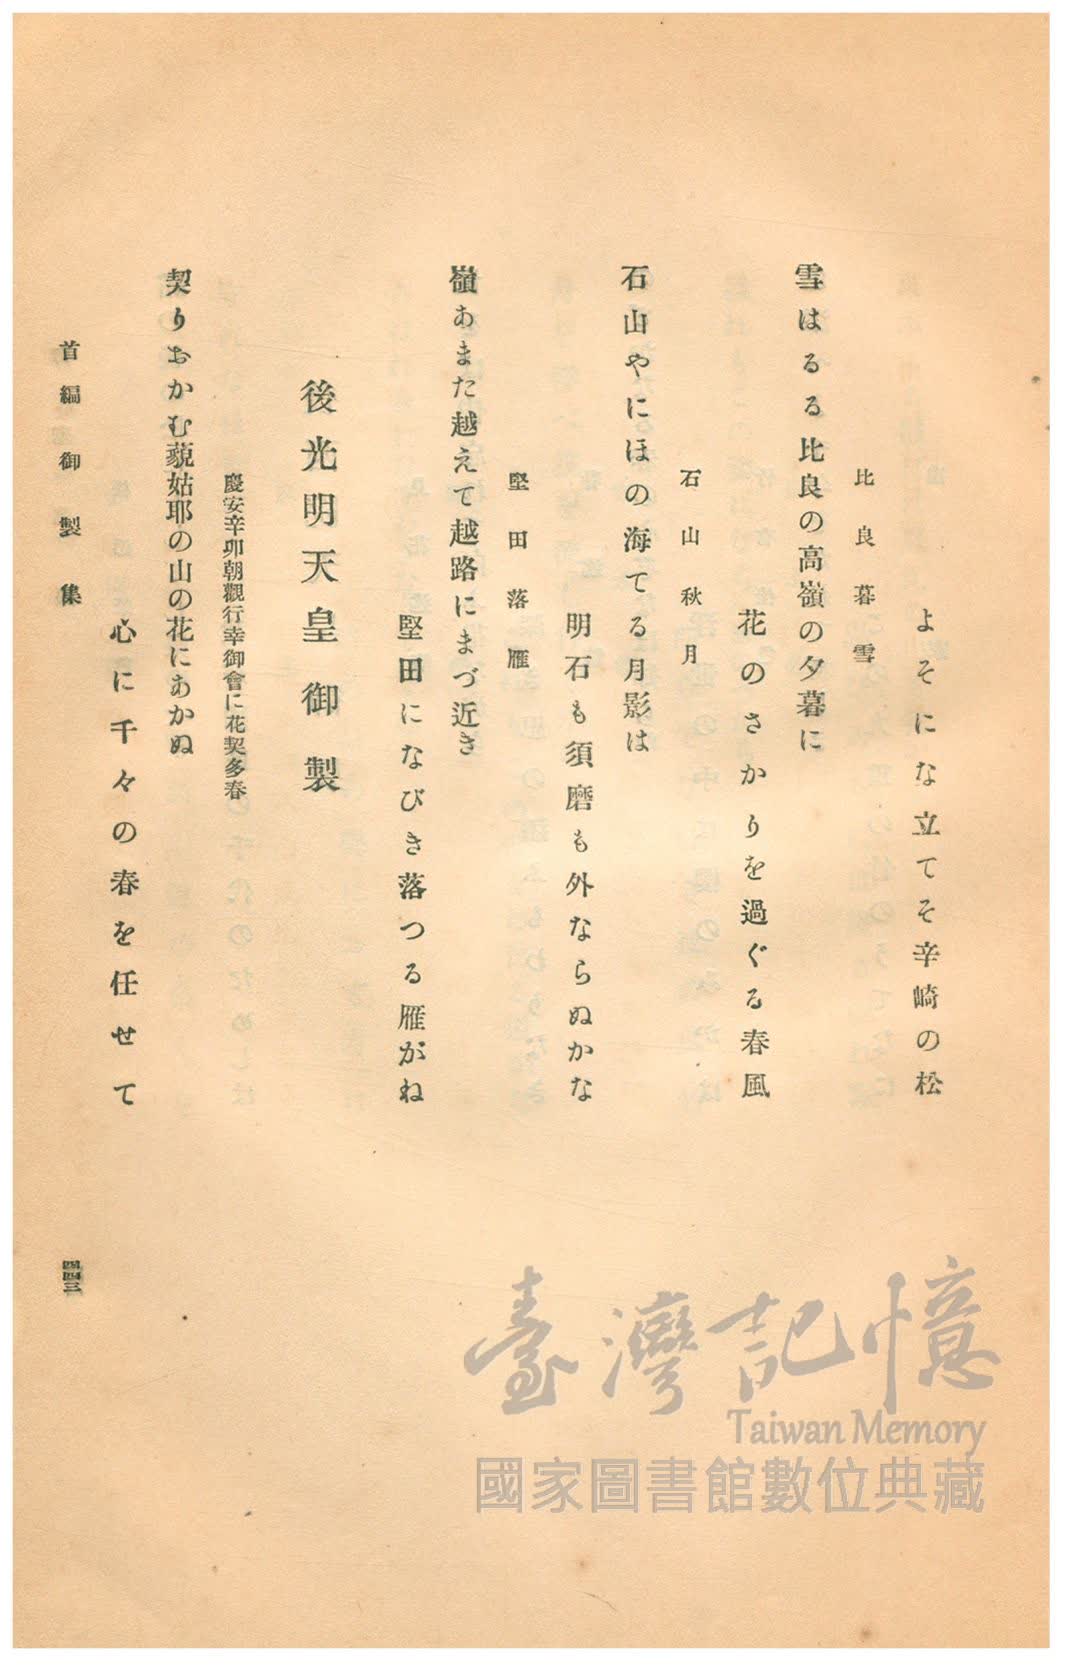 よそにな立てそ辛崎の松
比良暮雪
雪はるる比良の高嶺の夕暮に
花のさかりを過ぐる春風
石山秋月
石山やにほの海てる月影は
明石も須磨も外ならぬかな
堅田落雁
嶺あまた越えて越路にまづ近き
堅田になびき落つる雁がね
後光明天皇御製
慶安辛卯朝觀行幸御會に花契多春
契りおかむ藐姑耶の山の花にあかぬ
心に千々の春を任せて
首編御製集
四四三
臺灣記憶
Taiwan Memory
國家圖書館數位典藏